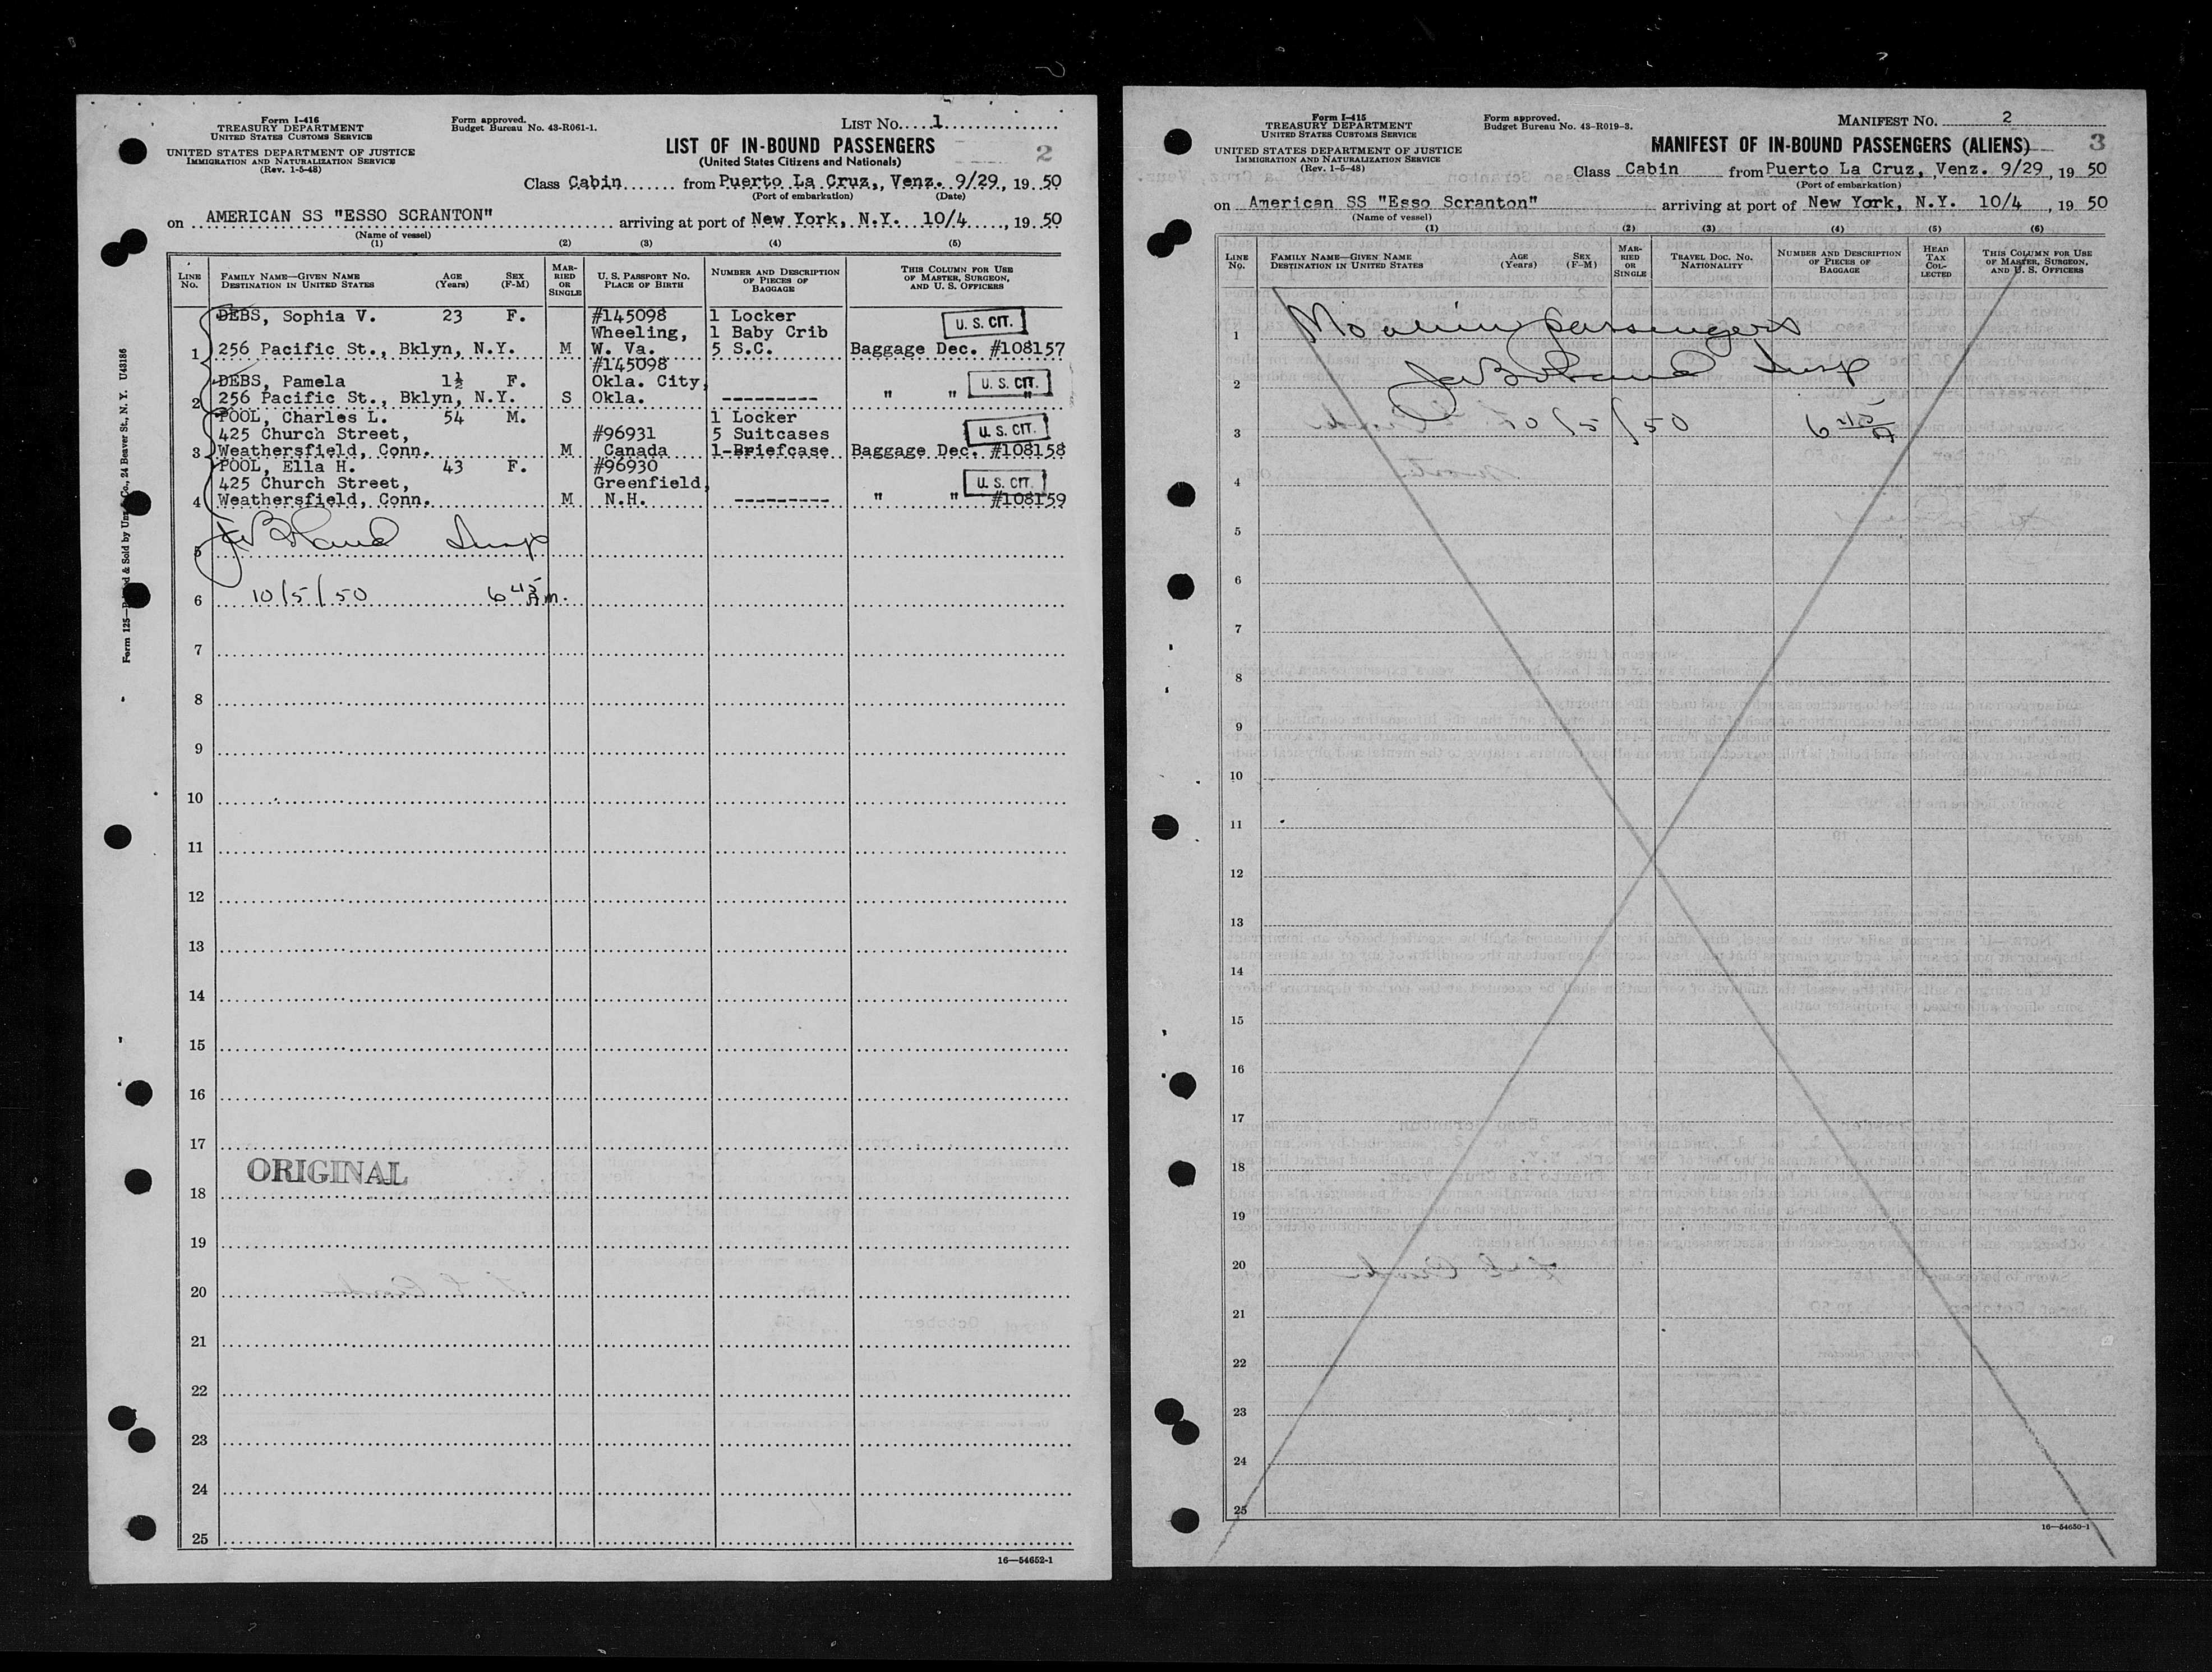 Form I-416
TREASURY DEPARTMENT
UNITED STATES CUSTOMS SERVICE
UNITED STATES DEPARTMENT OF JUSTICE
IMMIGRATION AND NATURALIZATION SERVICE
(Rev. 1-5-48)
Form approved.
Budget Bureau No. 43-R061-1.
LIST No. 1
LIST OF IN-BOUND PASSENGERS
(United States Citizens and Nationals)
2
Class Cabin from Puerto La Cruz, Venz. 9/29, 19 50
(Port of embarkation) (Date)
on AMERICAN SS "ESSO SCRANTON" arriving at port of New York, N.Y. 10/4, 19 50
(Name of vessel)
(1) (2) (3) (4) (5)
LINE No. FAMILY NAME—GIVEN NAME DESTINATION IN UNITED STATES AGE (Years) SEX (F-M) MARRIED OR SINGLE U. S. PASSPORT NO. PLACE OF BIRTH NUMBER AND DESCRIPTION OF PIECES OF BAGGAGE THIS COLUMN FOR USE OF MASTER, SURGEON, AND U. S. OFFICERS
DEBS, Sophia V. 23 F. #145098 1 Locker U. S. CIT.
Wheeling, 1 Baby Crib
1 256 Pacific St., Bklyn, N.Y. M W. Va. 5 S.C. Baggage Dec. #108157
#145098
DEBS, Pamela 1½ F. Okla. City, U. S. CIT.
2 256 Pacific St., Bklyn, N.Y. S Okla. --------- " " "
POOL, Charles L. 54 M. 1 Locker
425 Church Street, #96931 5 Suitcases U. S. CIT.
3 Weathersfield, Conn. M Canada 1-Briefcase Baggage Dec. #108158
POOL, Ella H. 43 F. #96930
425 Church Street, Greenfield, U. S. CIT.
4 Weathersfield, Conn. M N.H. --------- " " #108159
5 Insp
6 10/5/50 6 45 A.m.
7
8
9
10
11
12
13
14
15
16
17
ORIGINAL
18
19
20
21
22
23
24
25
16—54652-1
Form I-415
TREASURY DEPARTMENT
UNITED STATES CUSTOMS SERVICE
UNITED STATES DEPARTMENT OF JUSTICE
IMMIGRATION AND NATURALIZATION SERVICE
(Rev. 1-5-48)
Form approved.
Budget Bureau No. 43-R019-3.
MANIFEST No. 2
MANIFEST OF IN-BOUND PASSENGERS (ALIENS)
3
Class Cabin from Puerto La Cruz, Venz. 9/29, 19 50
(Port of embarkation)
on American SS "Esso Scranton" arriving at port of New York, N.Y. 10/4, 19 50
(Name of vessel)
(1) (2) (3) (4) (5) (6)
LINE No. FAMILY NAME—GIVEN NAME DESTINATION IN UNITED STATES AGE (Years) SEX (F-M) MARRIED OR SINGLE TRAVEL DOC. NO. NATIONALITY NUMBER AND DESCRIPTION OF PIECES OF BAGGAGE HEAD TAX COLLECTED THIS COLUMN FOR USE OF MASTER, SURGEON, AND U. S. OFFICERS
1 No alien passengers
2 Insp
3 10/5/50 6 45 A
4
5
6
7
8
9
10
11
12
13
14
15
16
17
18
19
20
21
22
23
24
25
16—54650-1